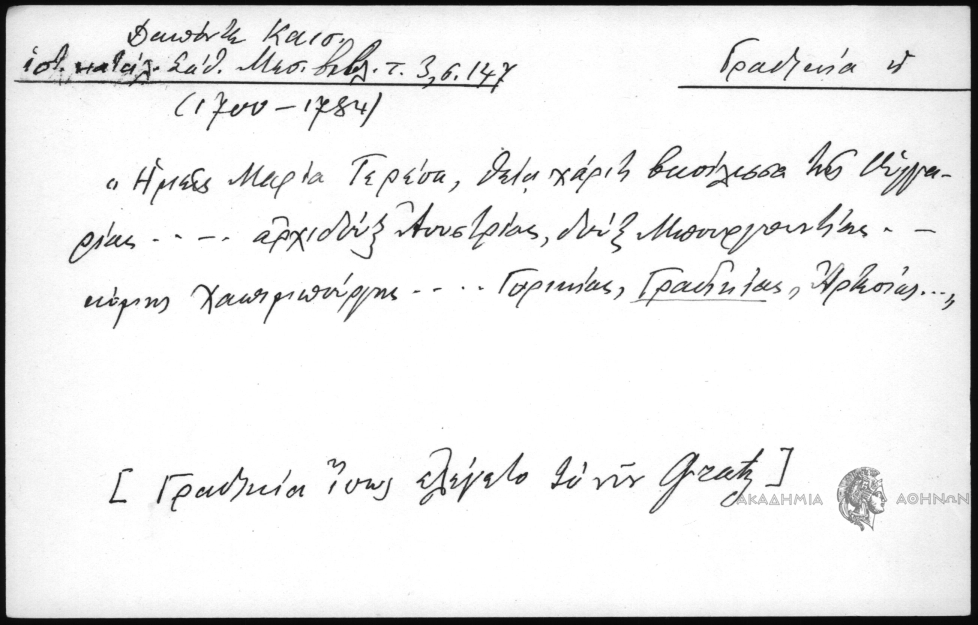 Δαπόντε Καισ.
ἱστ. κατάλ. Σάθ. Μεσ. βιβλ. τ. 3, σ. 147
(1700-1784)
Γραδισκία ἡ
"Ἡμεῖς Μαρία Τερέσα, θείᾳ χάριτι βασίλισσα τῆς Οὑγγα-
ρίας ..... ἀρχιδούξ Ἀουστρίας, δούξ Μπουργουντίας . -
κόμης Χαπσμπούργης ..... Γορικίας, Γραδισκίας, Ἀρτεσίας...,,
[Γραδισκία ἴσως ἐλέγετο τὸ νῦν Gratz]
ΑΚΑΔΗΜΙΑ ΑΘΗΝΩΝ